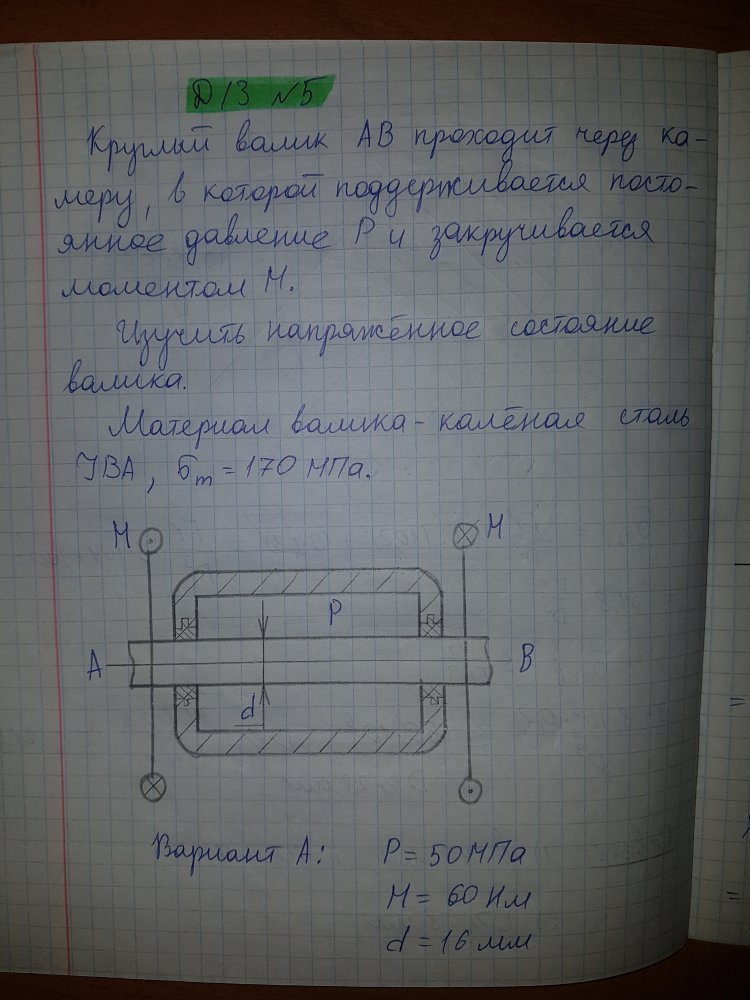 Д/З №5
Круглый валик АВ проходит через ка-
меру, в которой поддерживается посто-
янное давление Р и закручивается
моментом М.
Изучить напряжённое состояние
валика.
Материал валика - калёная сталь
УВА, σт = 170 МПа.
М
М
Р
А
В
d
Вариант А: Р = 50 МПа
М = 60 Нм
d = 16 мм